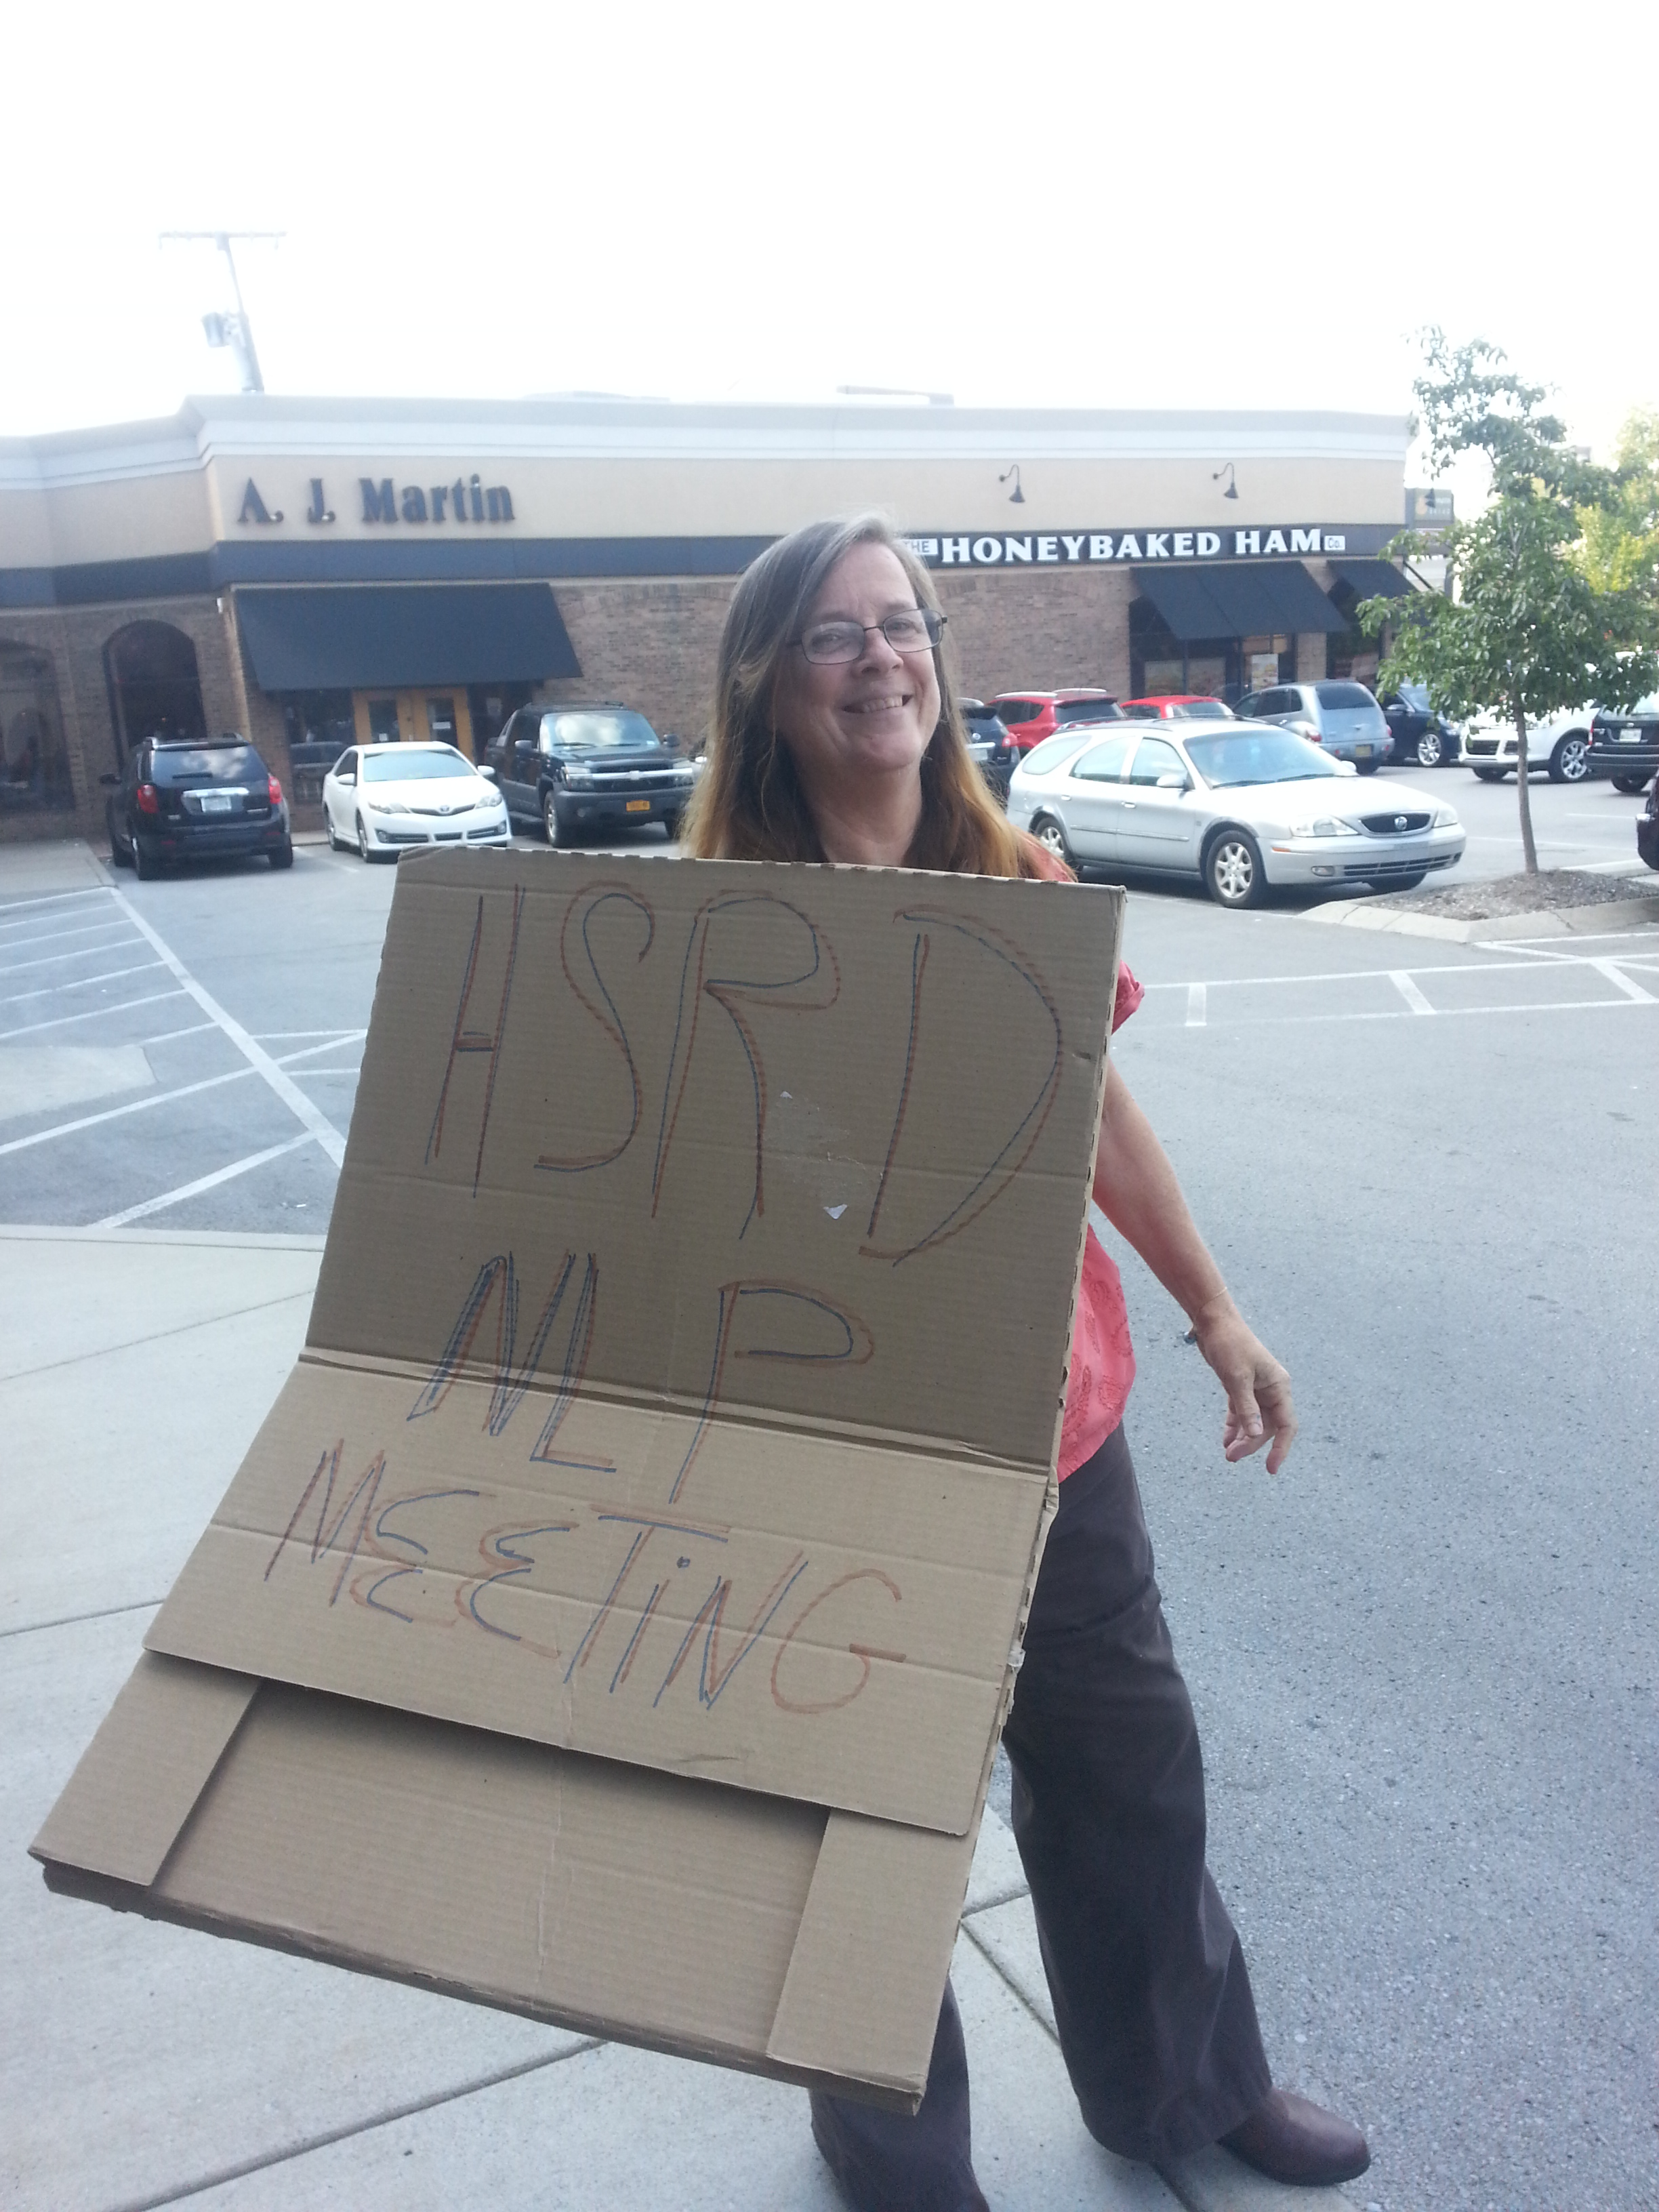 A. J. Martin
THE HONEYBAKED HAM Co.
HSRD
NLP
MEETiNG